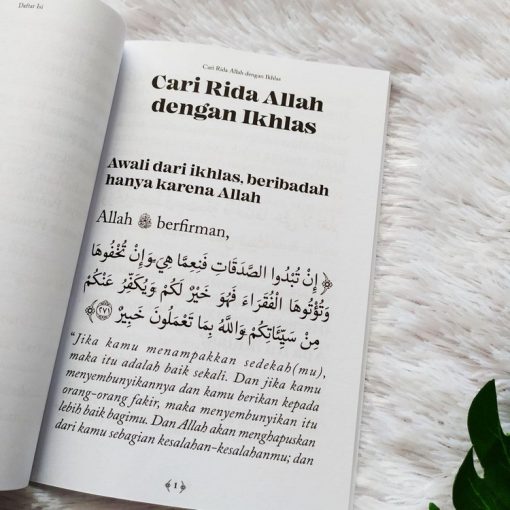 Daftar Isi
Cari Rida Allah dengan Ikhlas
Cari Rida Allah
dengan Ikhlas
Awali dari ikhlas, beribadah
hanya karena Allah
Allah ﷻ berfirman,
﴿ إِنْ تُبْدُوا الصَّدَقَاتِ فَنِعِمَّا هِيَ وَإِنْ تُخْفُوهَا
وَتُؤْتُوهَا الْفُقَرَاءَ فَهُوَ خَيْرٌ لَكُمْ وَيُكَفِّرُ عَنْكُمْ
مِنْ سَيِّئَاتِكُمْ وَاللَّهُ بِمَا تَعْمَلُونَ خَبِيرٌ ﴿٢٧١﴾
“Jika kamu menampakkan sedekah(mu),
maka itu adalah baik sekali. Dan jika kamu
menyembunyikannya dan kamu berikan kepada
orang-orang fakir, maka menyembunyikan itu
lebih baik bagimu. Dan Allah akan menghapuskan
dari kamu sebagian kesalahan-kesalahanmu; dan
1